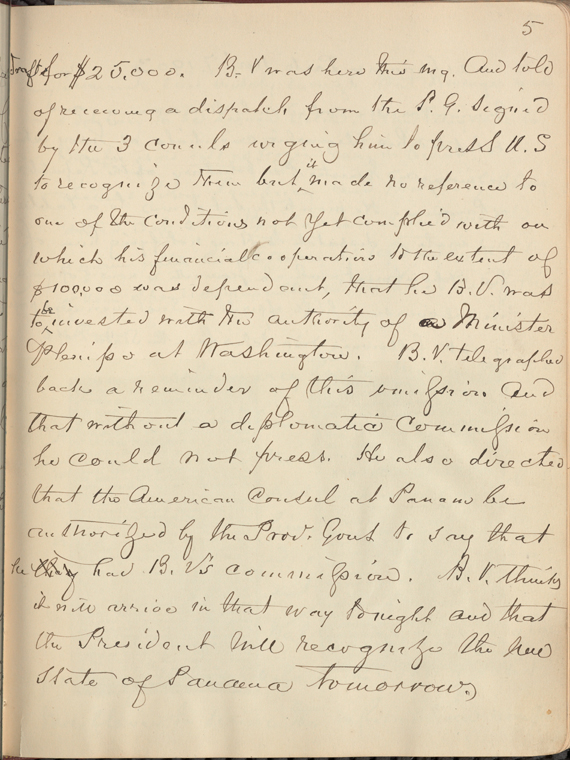 5
Draft for $25,000. B.V was here this mg. And told
of receiving a dispatch from the P. G. signed
by the 3 consuls urging him to press U.S
to recognize them but it made no reference to
one of the conditions not yet complied with on
which his financial cooperation to the extent of
$100,000 was dependant, that he B.V. was
to be invested with the authority of a Minister
Plenipo at Washington. B.V. telegraphed
back a reminder of this omission and
that without a diplomatic commission
he could not press. He also directed
that the American Consul at Panama be
authorized by the Prov. Govt to say that
he they had B.V's commission. B.V. thinks
it will arrive in that way tonight and that
the President will recognize the new
State of Panama tomorrow.)